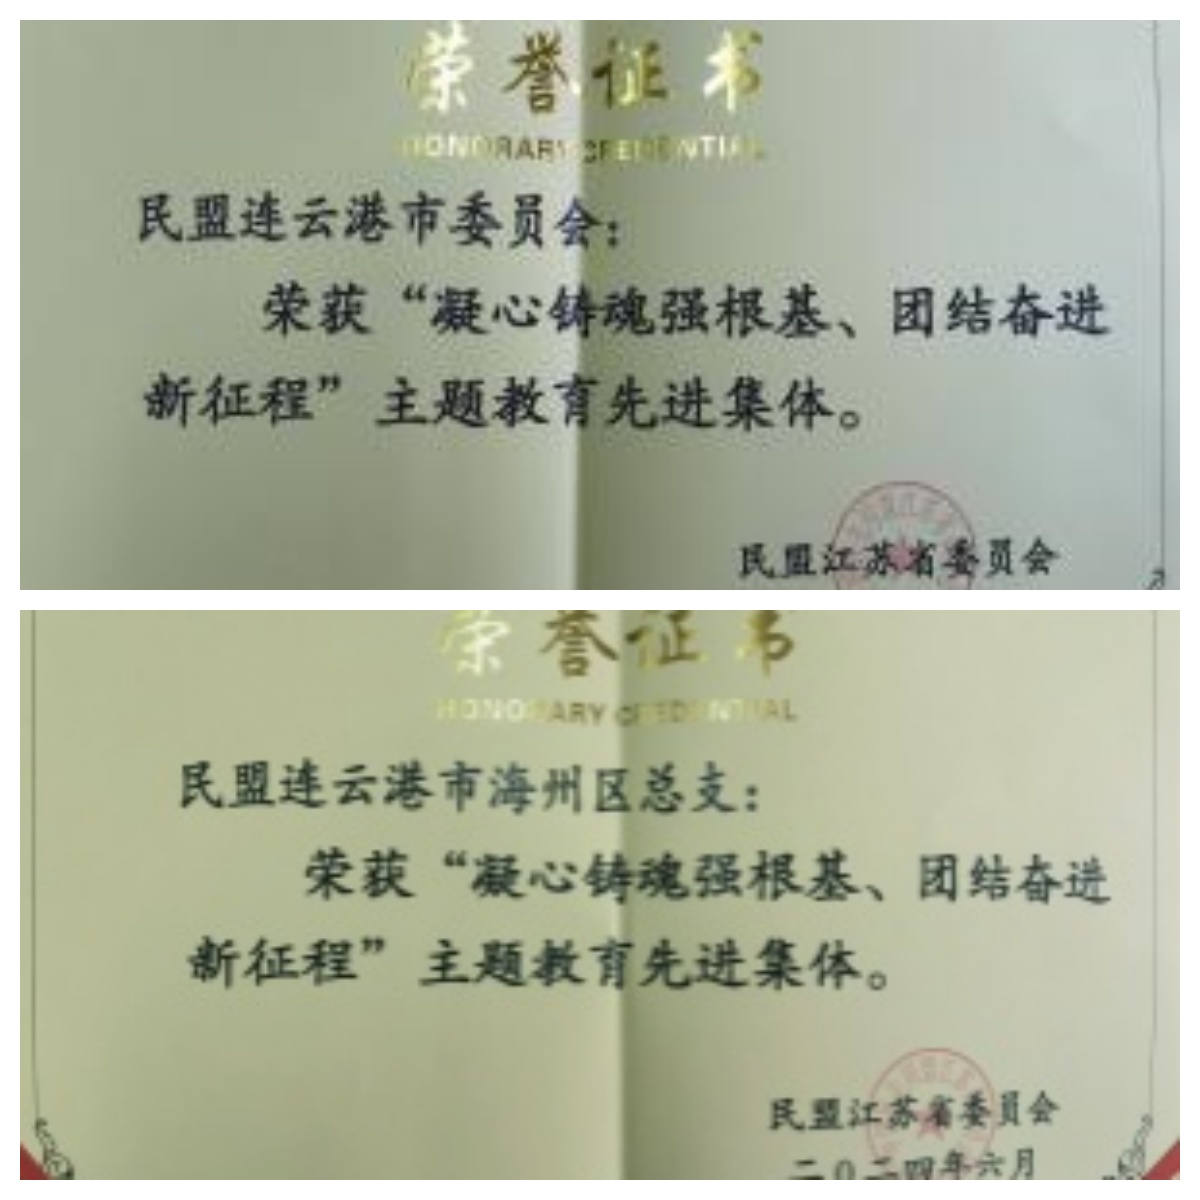 荣誉证书
HONORARY CREDENTIAL
民盟连云港市委员会：
荣获“凝心铸魂强根基、团结奋进
新征程”主题教育先进集体。
民盟江苏省委员会
荣誉证书
HONORARY CREDENTIAL
民盟连云港市海州区总支：
荣获“凝心铸魂强根基、团结奋进
新征程”主题教育先进集体。
民盟江苏省委员会
二0二四年六月